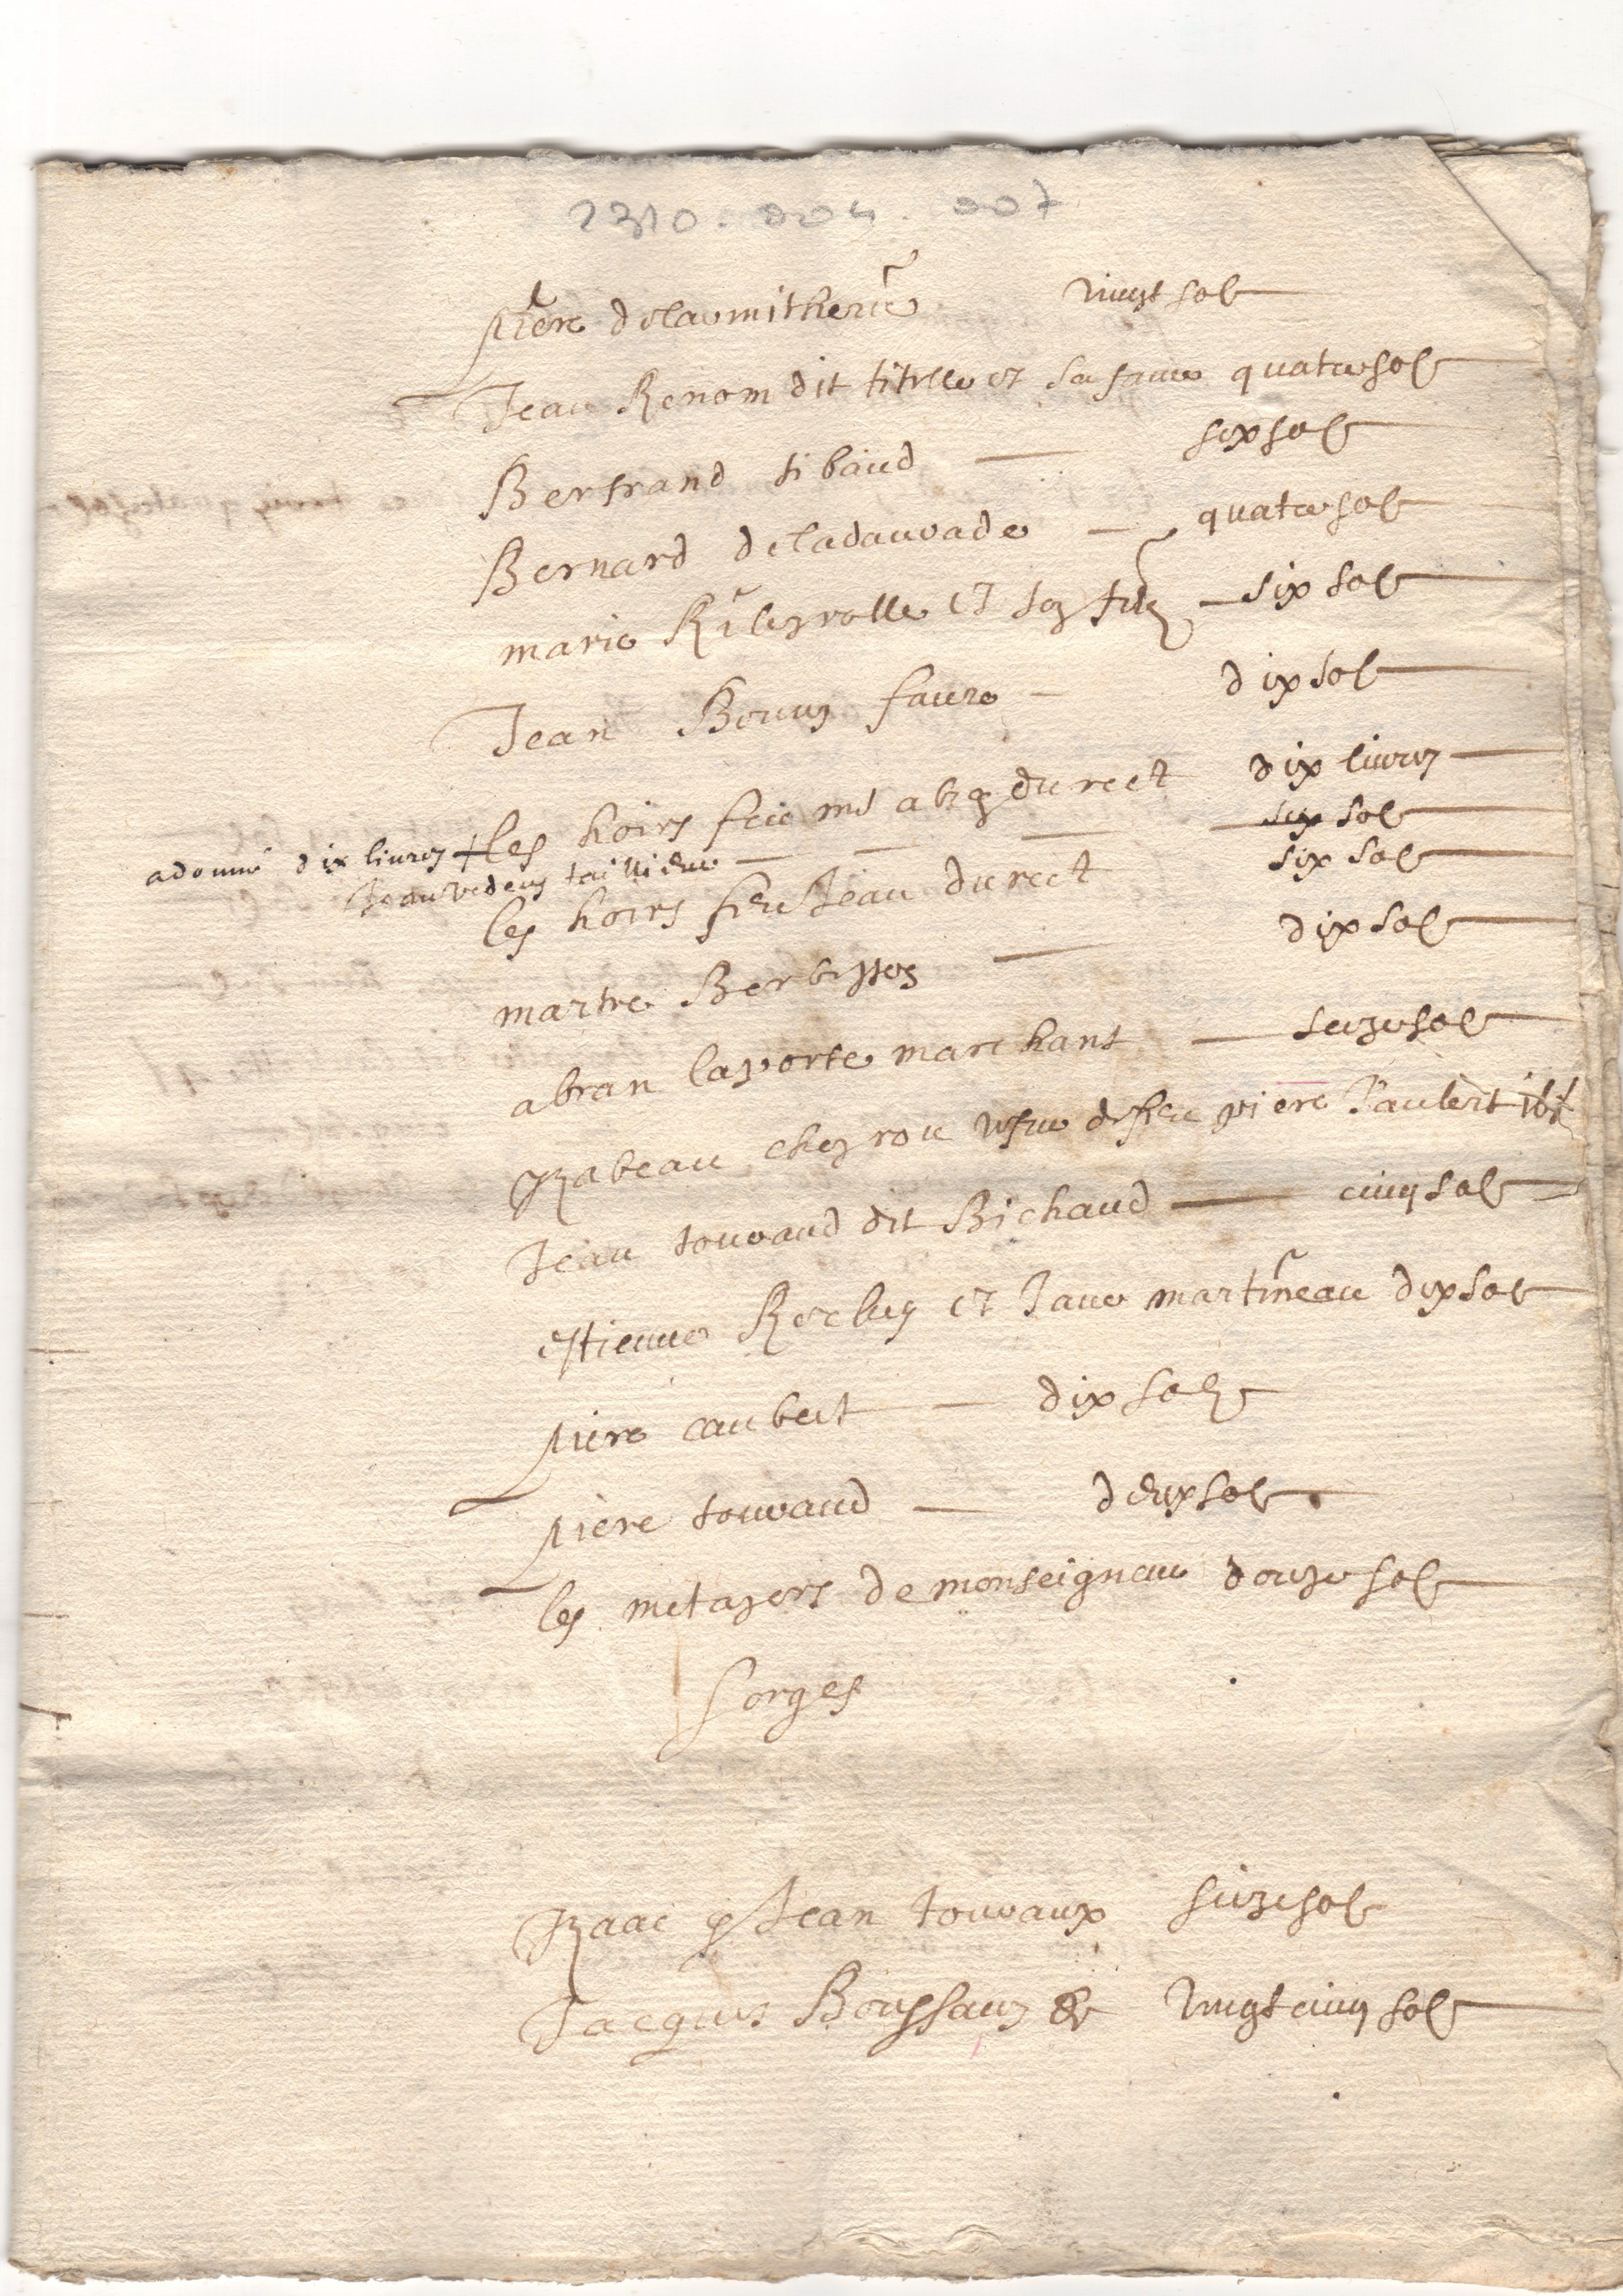 2310.004.007
piere delaumitherie vingt sol
Jean Renom dit titelle et sa fame quatre sol
Bertrand tibaud six sol
Bernard deladauvade quatre sol
marie et son filz six sol
Jean faure dix sol
les hoirs feu ms du rect dix livres
adonné dix livres +
Jean tailleur six sol
les hoirs feu Jean du rect six sol
martre dix sol
abran laporte marchant seize sol
Izabeau cheyrou vefve de feu piere Jaubert
Jean touvaud dit Bichaud cinq sol
estienne Reclus et Jane martineau dix sol
piere caubert dix solz
piere touvaud deux sol
les metayers de monseigneur douze sol
sorges
Izaac & Jean touvaux seize sol
Jacques vingt cinq sol